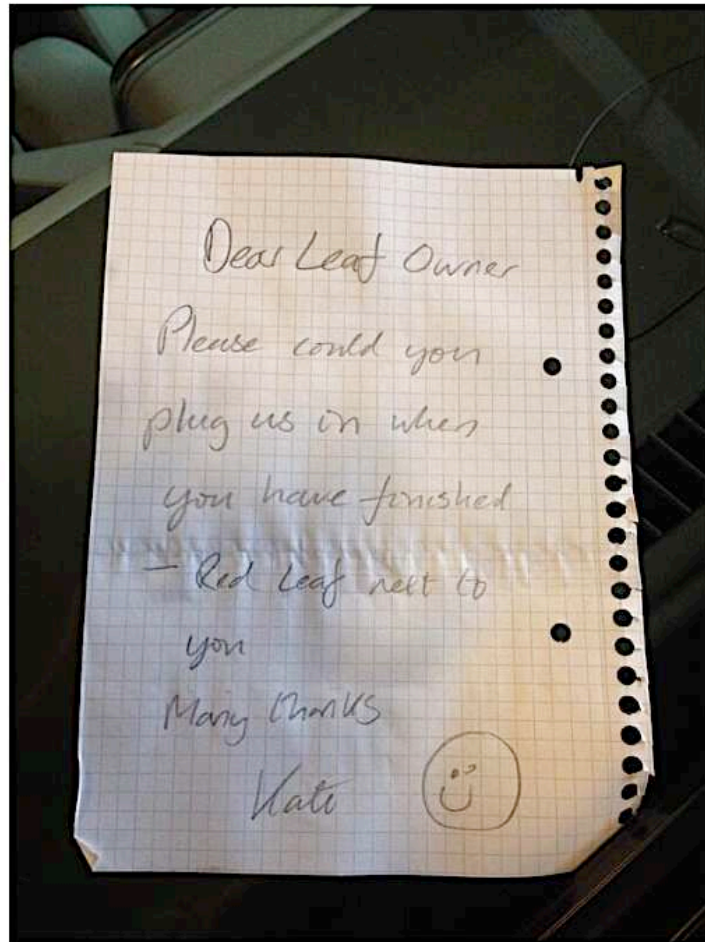 Dear Leaf Owner
Please could you
plug us in when
you have finished
- Red Leaf next to
you
Many thanks
Kate